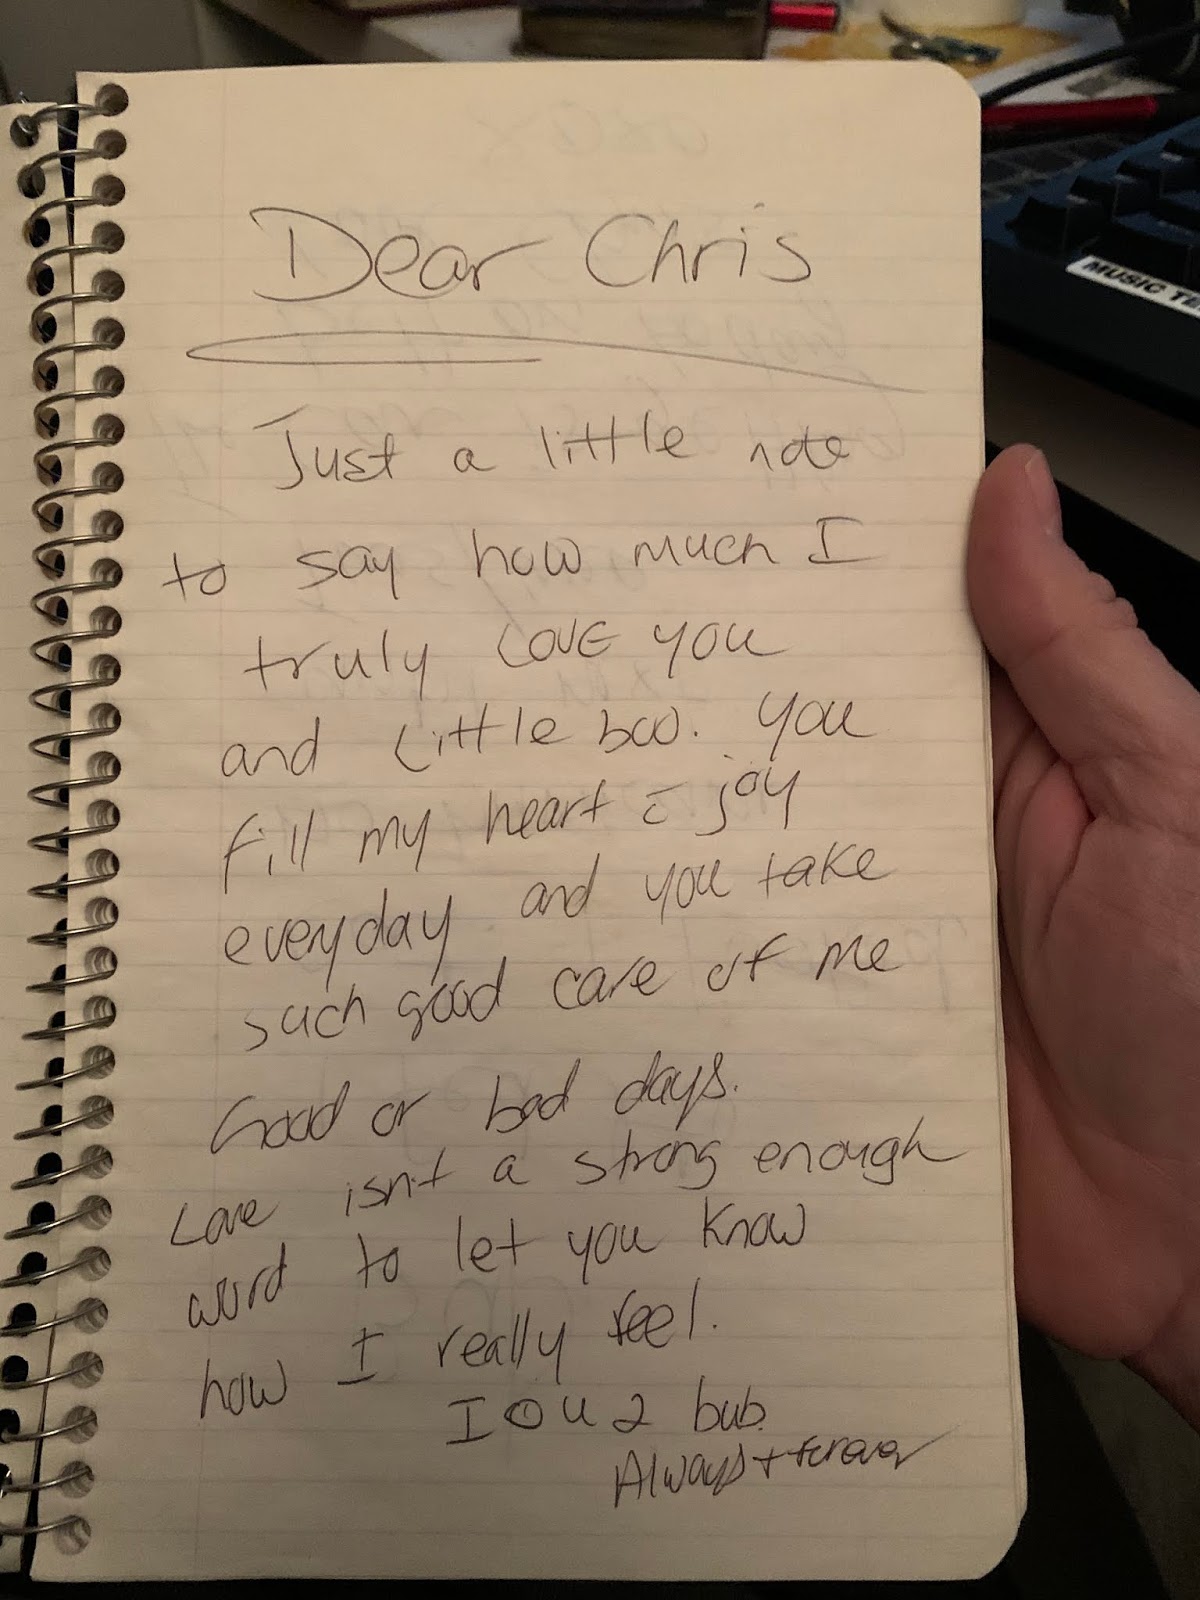 Dear Chris
Just a little note
to say how much I
truly LOVE you
and Little boo. you
fill my heart c̄ joy
everyday and you take
such good care of me
Good or bad days.
Love isn't a strong enough
word to let you know
how I really feel.
I O U 2 bub.
Always + forever
MUSIC TE